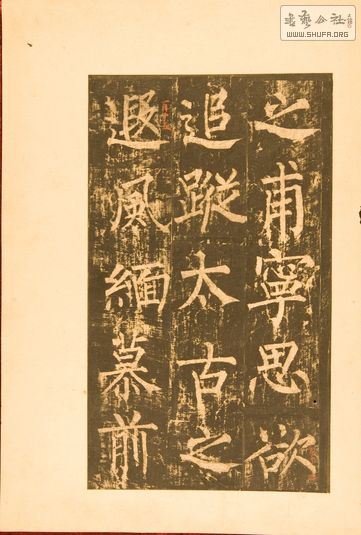 之甫寧思欲
追蹤太古之
遐風緬慕前
書藝公社
WWW.SHUFA.ORG